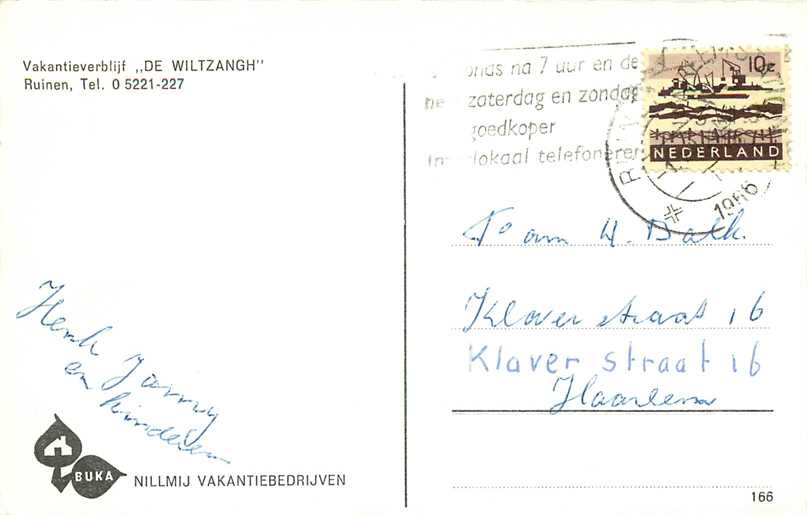 Vakantieverblijf „DE WILTZANGH"
Ruinen, Tel. 0 5221-227
onds na 7 uur en de
zaterdag en zondag
goedkoper
lokaal telefoneren
10c
NEDERLAND
1966
Fam H.
Klaver straat 16
Klaver straat 16
Haarlem
Henk
en kinderen
BUKA
NILLMIJ VAKANTIEBEDRIJVEN
166